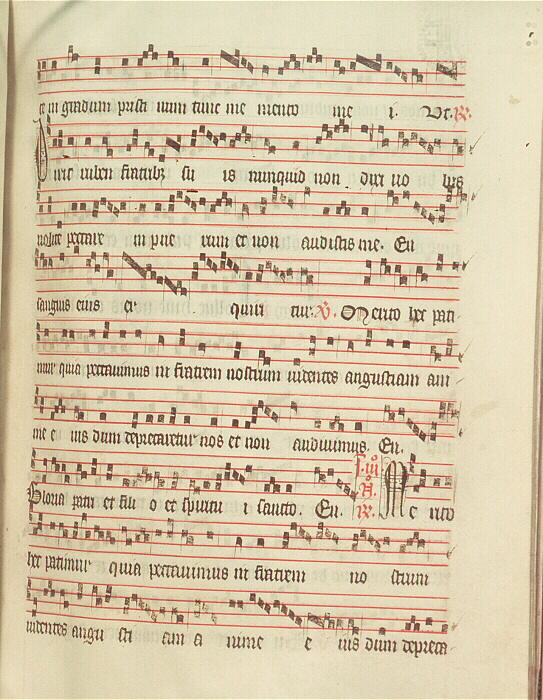 te in gradum pristi num tunc me mento me i. Ut. R.
Dixit ruben fratribz su is nunquid non dixi vo bis
nolite peccare in pue rum et non audistis me. En
sanguis eius ex quiri tur. V. Merito hec pati
mur quia peccavimus in fratrem nostrum videntes angustiam ani
me e ius dum deprecaretur nos et non audivimus. En.
Gloria patri et fili o et spiritu i sancto. En. R. Me rito
hec patimur quia peccavimus in fratrem no strum
videntes angu sti am a nime e ius dum depreca